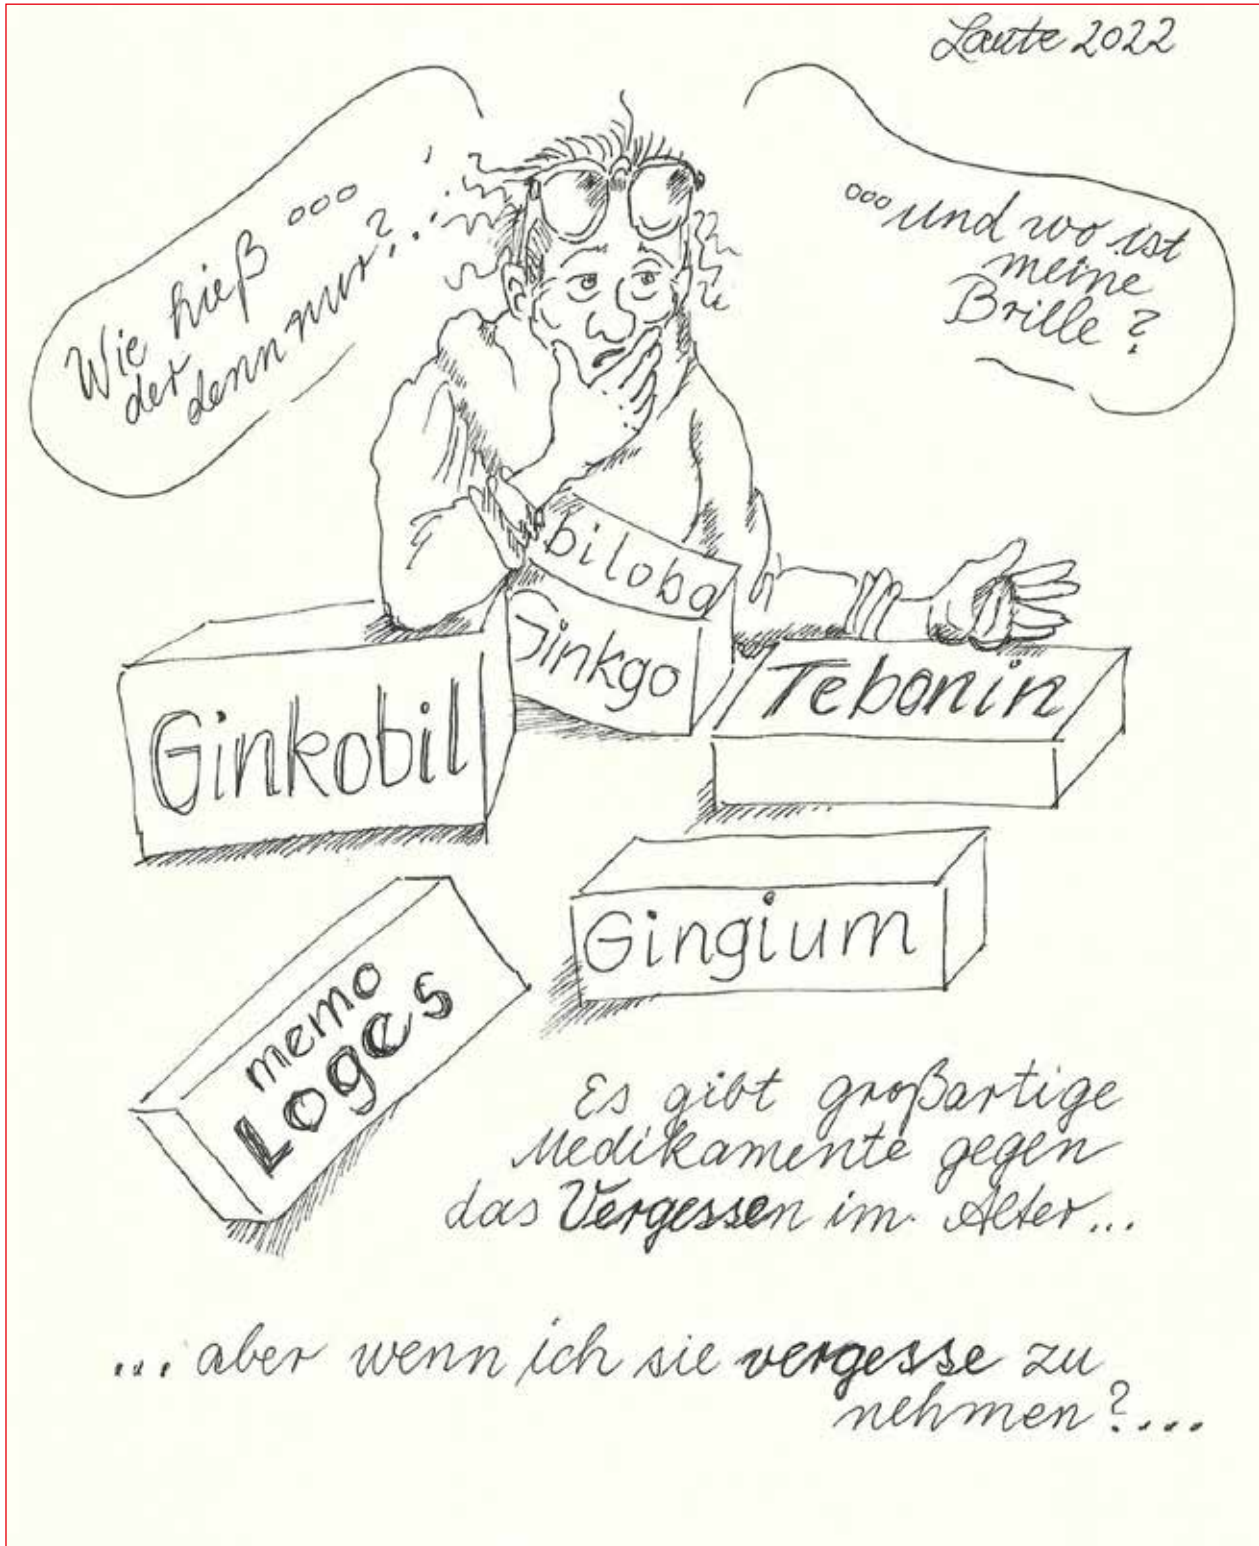 Laute 2022
Wie hieß ...
der
denn nur?...
... und wo ist
meine
Brille?
biloba
Ginkgo
Ginkobil
Tebonin
Gingium
memo
Loges
Es gibt großartige
Medikamente gegen
das Vergessen im Alter...
... aber wenn ich sie vergesse zu
nehmen?...